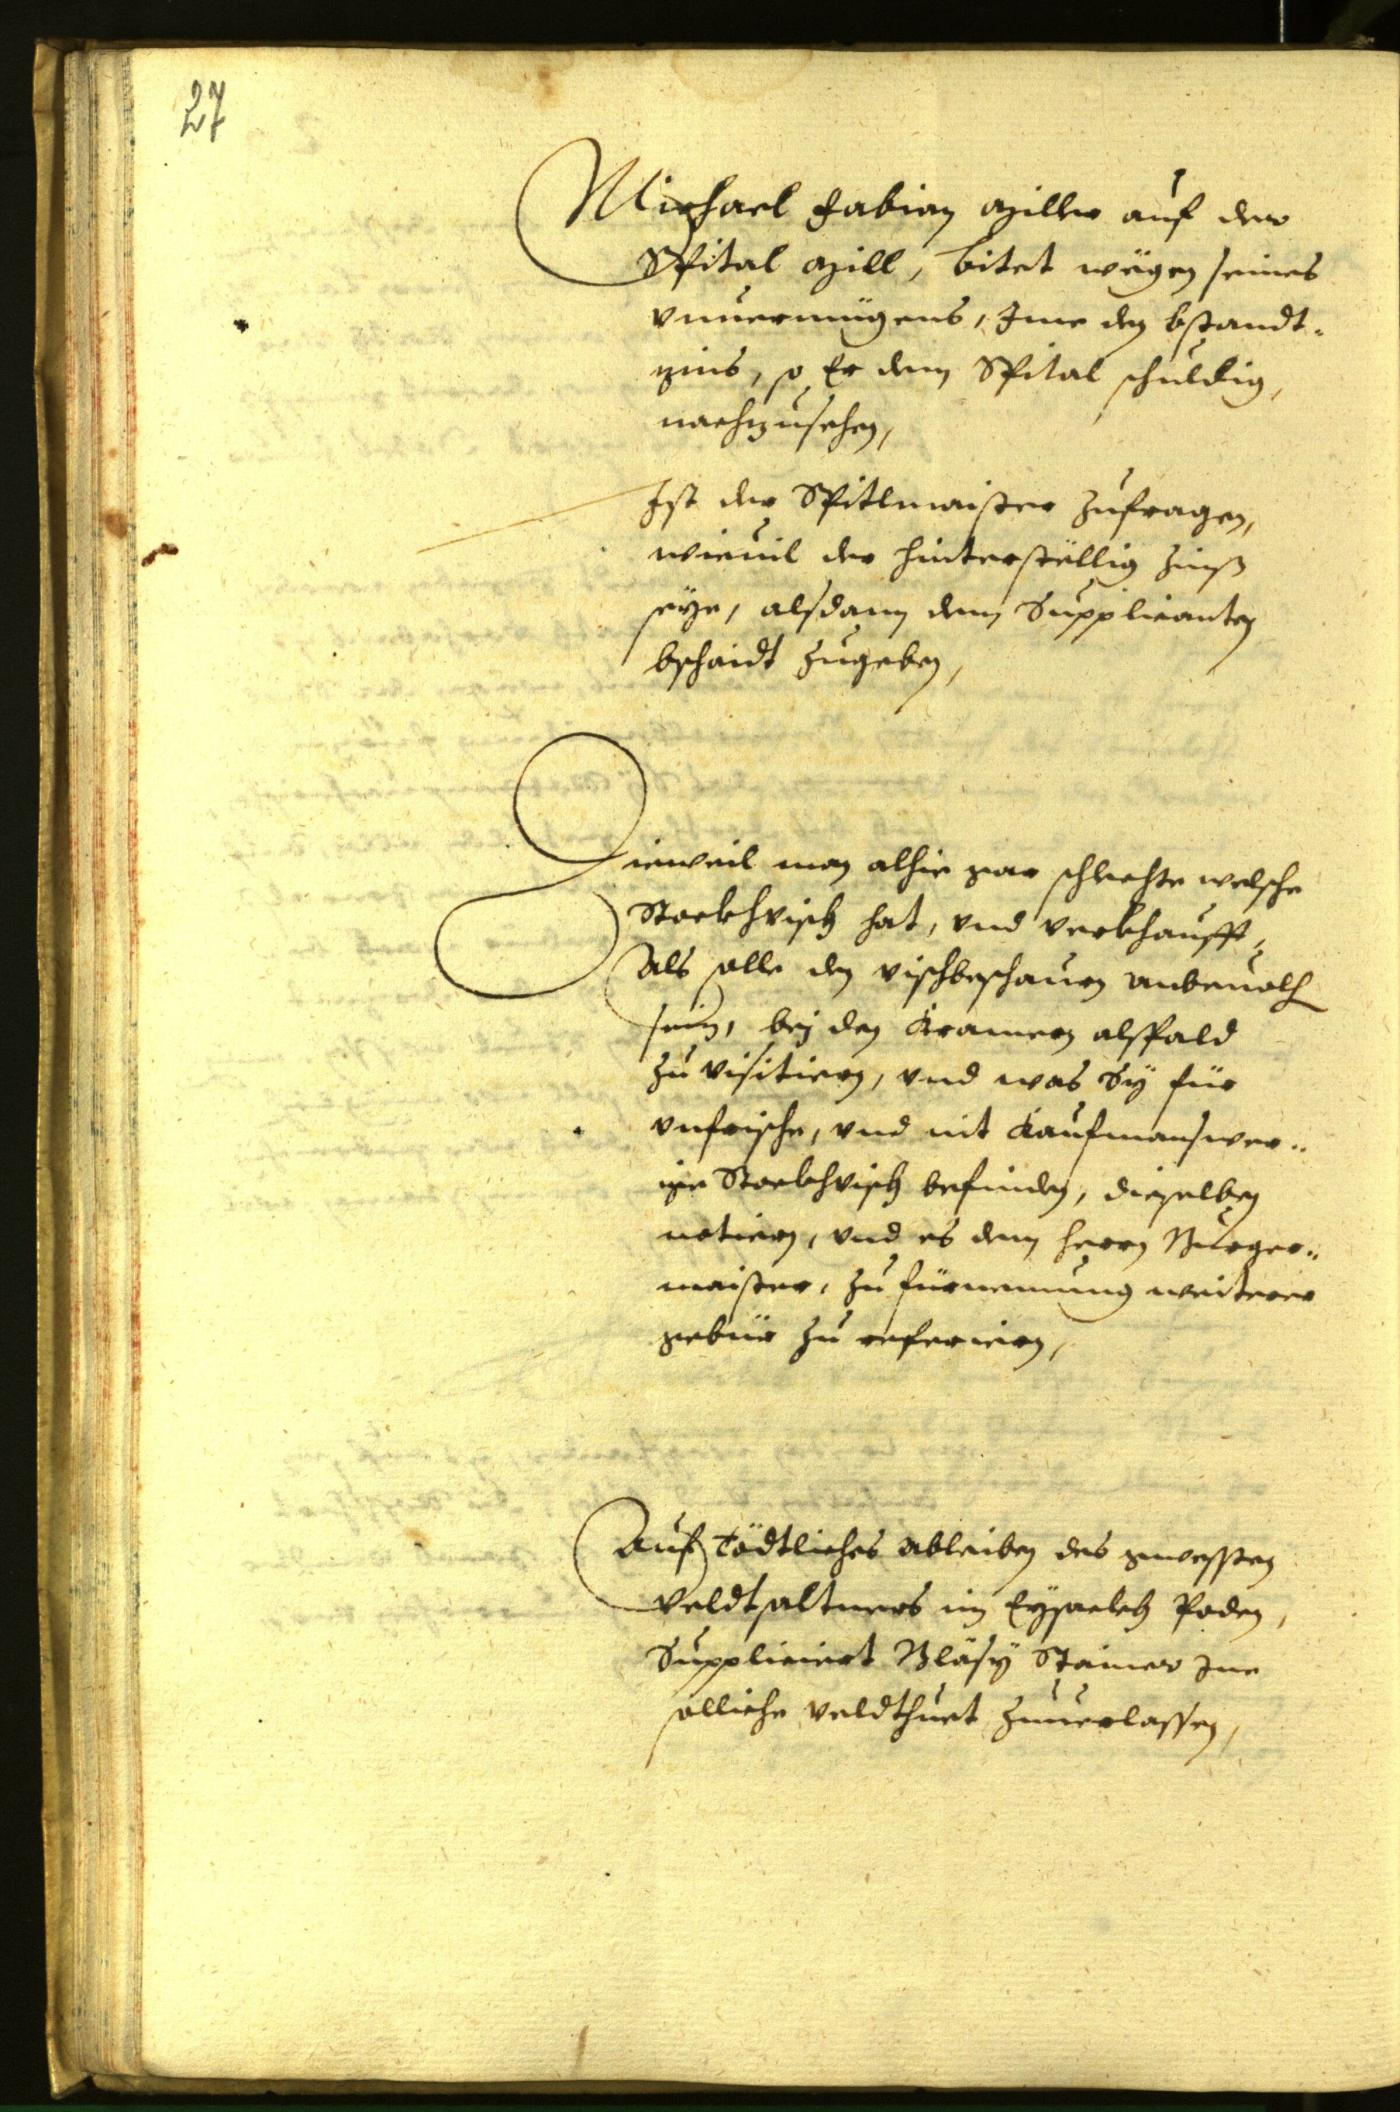 27
Michael Fabian Miller auf der
Spital Mill, bitet wegen seines
vnuermügens, Ime den bstandt-
zins, so Er dem Spital schuldig,
nachzusehen,
Ist der Spitlmaister zufragen,
wieuil der hinterstellig Zinß
seye, alsdann dem Supplicanten
bschaidt zugeben,
Dieweil man alhie gar schlechte welsche
Stockhvisch hat, vnd verkhaufft,
Als solle den vischbeschauern anbeuolh
sein, bej den Kramern alspald
zu visitiern, vnd was Sÿ für
vnfrische, vnd nit Kaufmanswer-
ige Stockhvisch befinden, dieselben
notiern, vnd es dem herrn Burger-
maister, zu fürnemung weiterer
gebür zu referiern,
Auf Tödtliches ableiben des gwessten
veldtsaltners im Eysackh Poden,
Suppliciert Bläsÿ Stainer Ime
solliche veldthuet zuuerlassen,